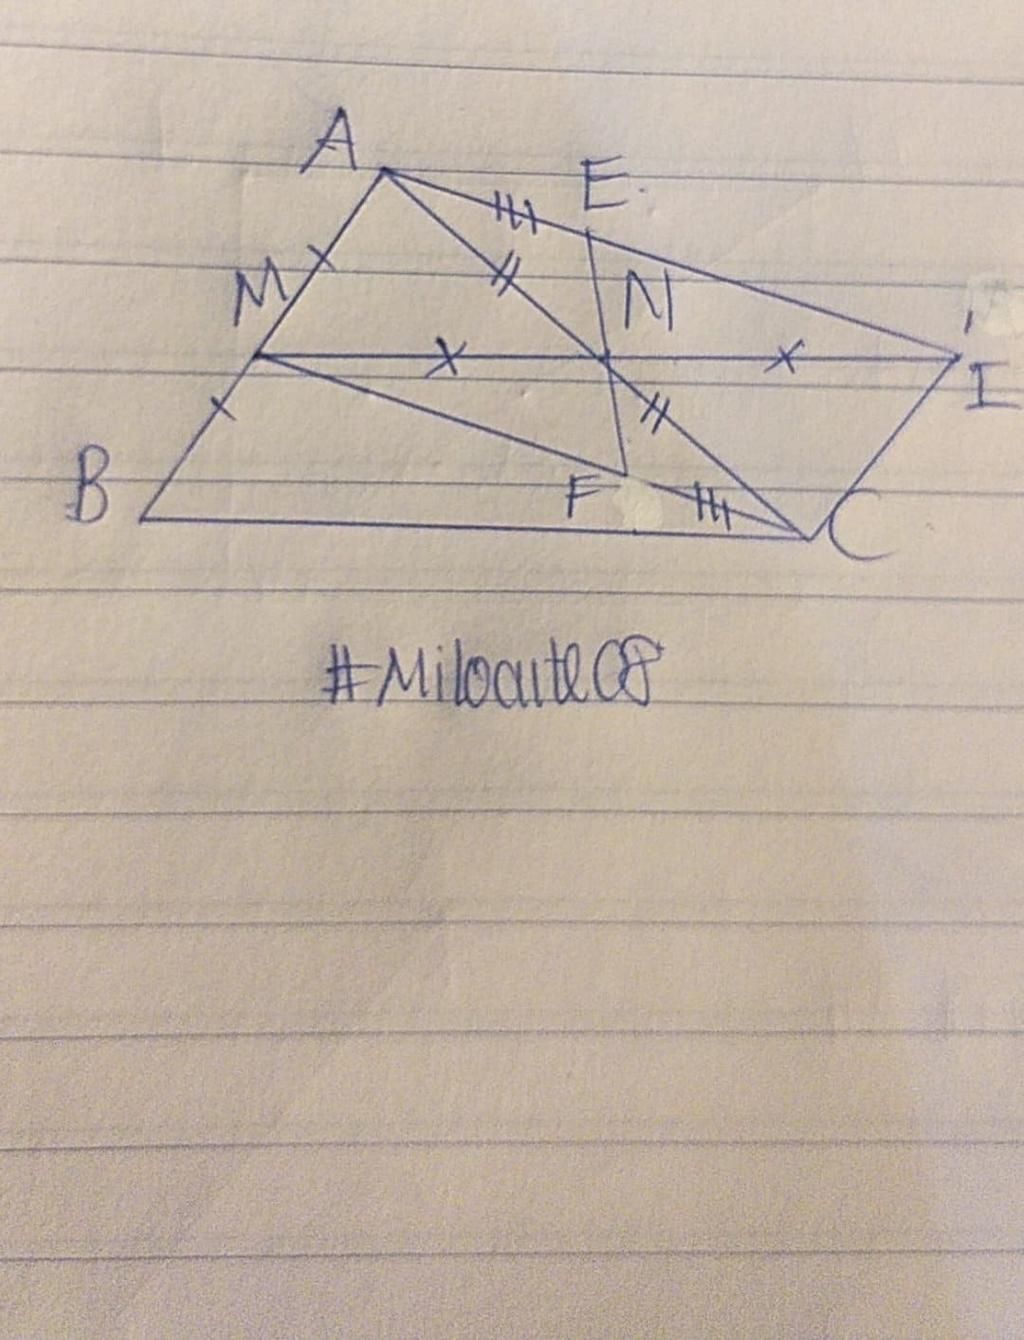 A
E
M
N
I
B
F
C
#Miloaute08